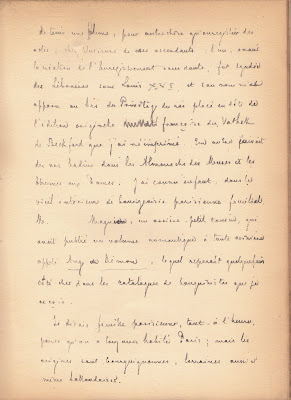 de tenir une plume, pour autre chose qu'enregistrer des
actes, chez plusieurs de mes ascendants : l'un, avant
la création de l'Enregistrement sans doute, fut syndic
des Libraires sous Louis XVI et son nom m'est
apparu au bas du Privilège du roi placé en tête de
l'édition originelle française du Vathek
de Beckford que j'ai réimprimé. Un autre écrivait
des vers badins dans les Almanachs des Muses et les
Étrennes aux Dames. J'ai connu enfant, dans le
vieil intérieur de bourgeoisie parisienne familial
M. Magnien, un arrière-petit cousin, qui
avait publié un volume romantique à toute crinière
appelé Ange ou Démon, lequel reparaît quelquefois
coté cher dans les catalogues de bouquinistes que je
reçois.
Je disais famille parisienne, tout-à-l'heure,
parce qu'on a toujours habité Paris ; mais les
origines sont bourguignonnes, lorraines aussi et
même hollandaises.